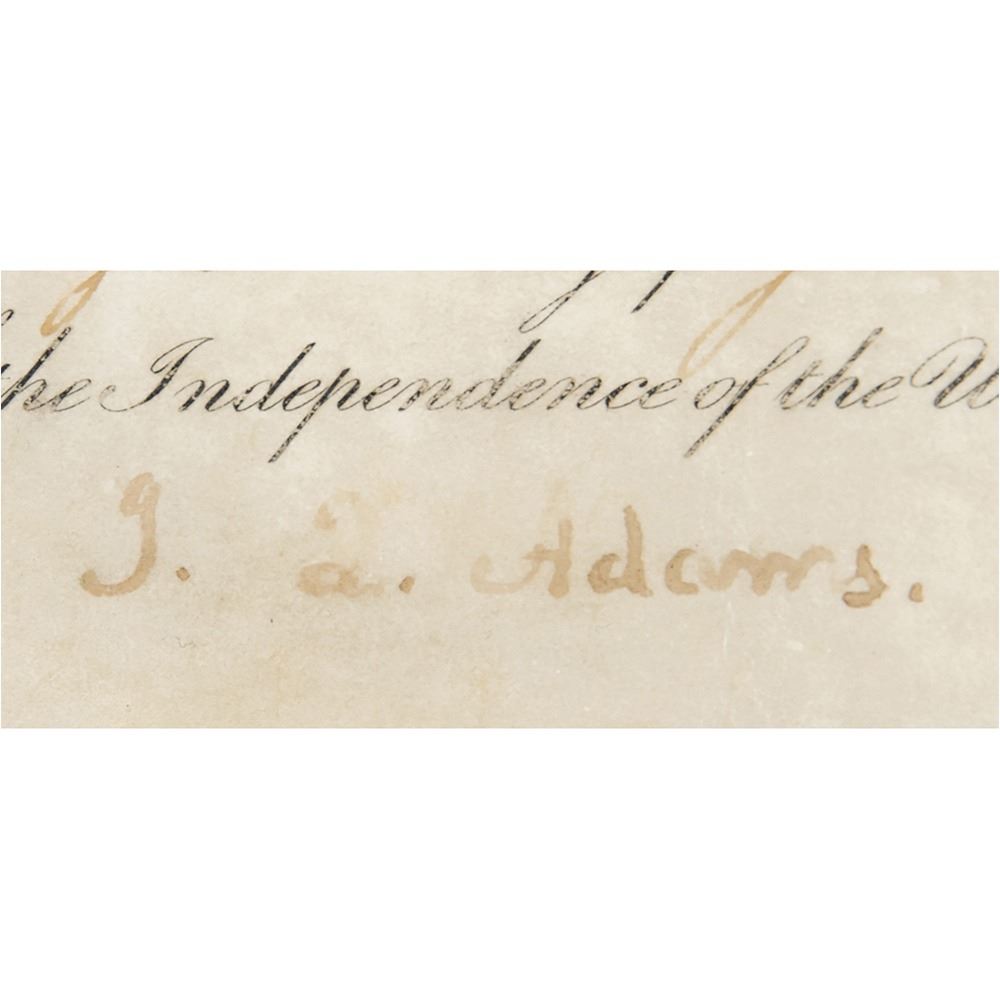 the Independence of the U
J. Q. Adams.